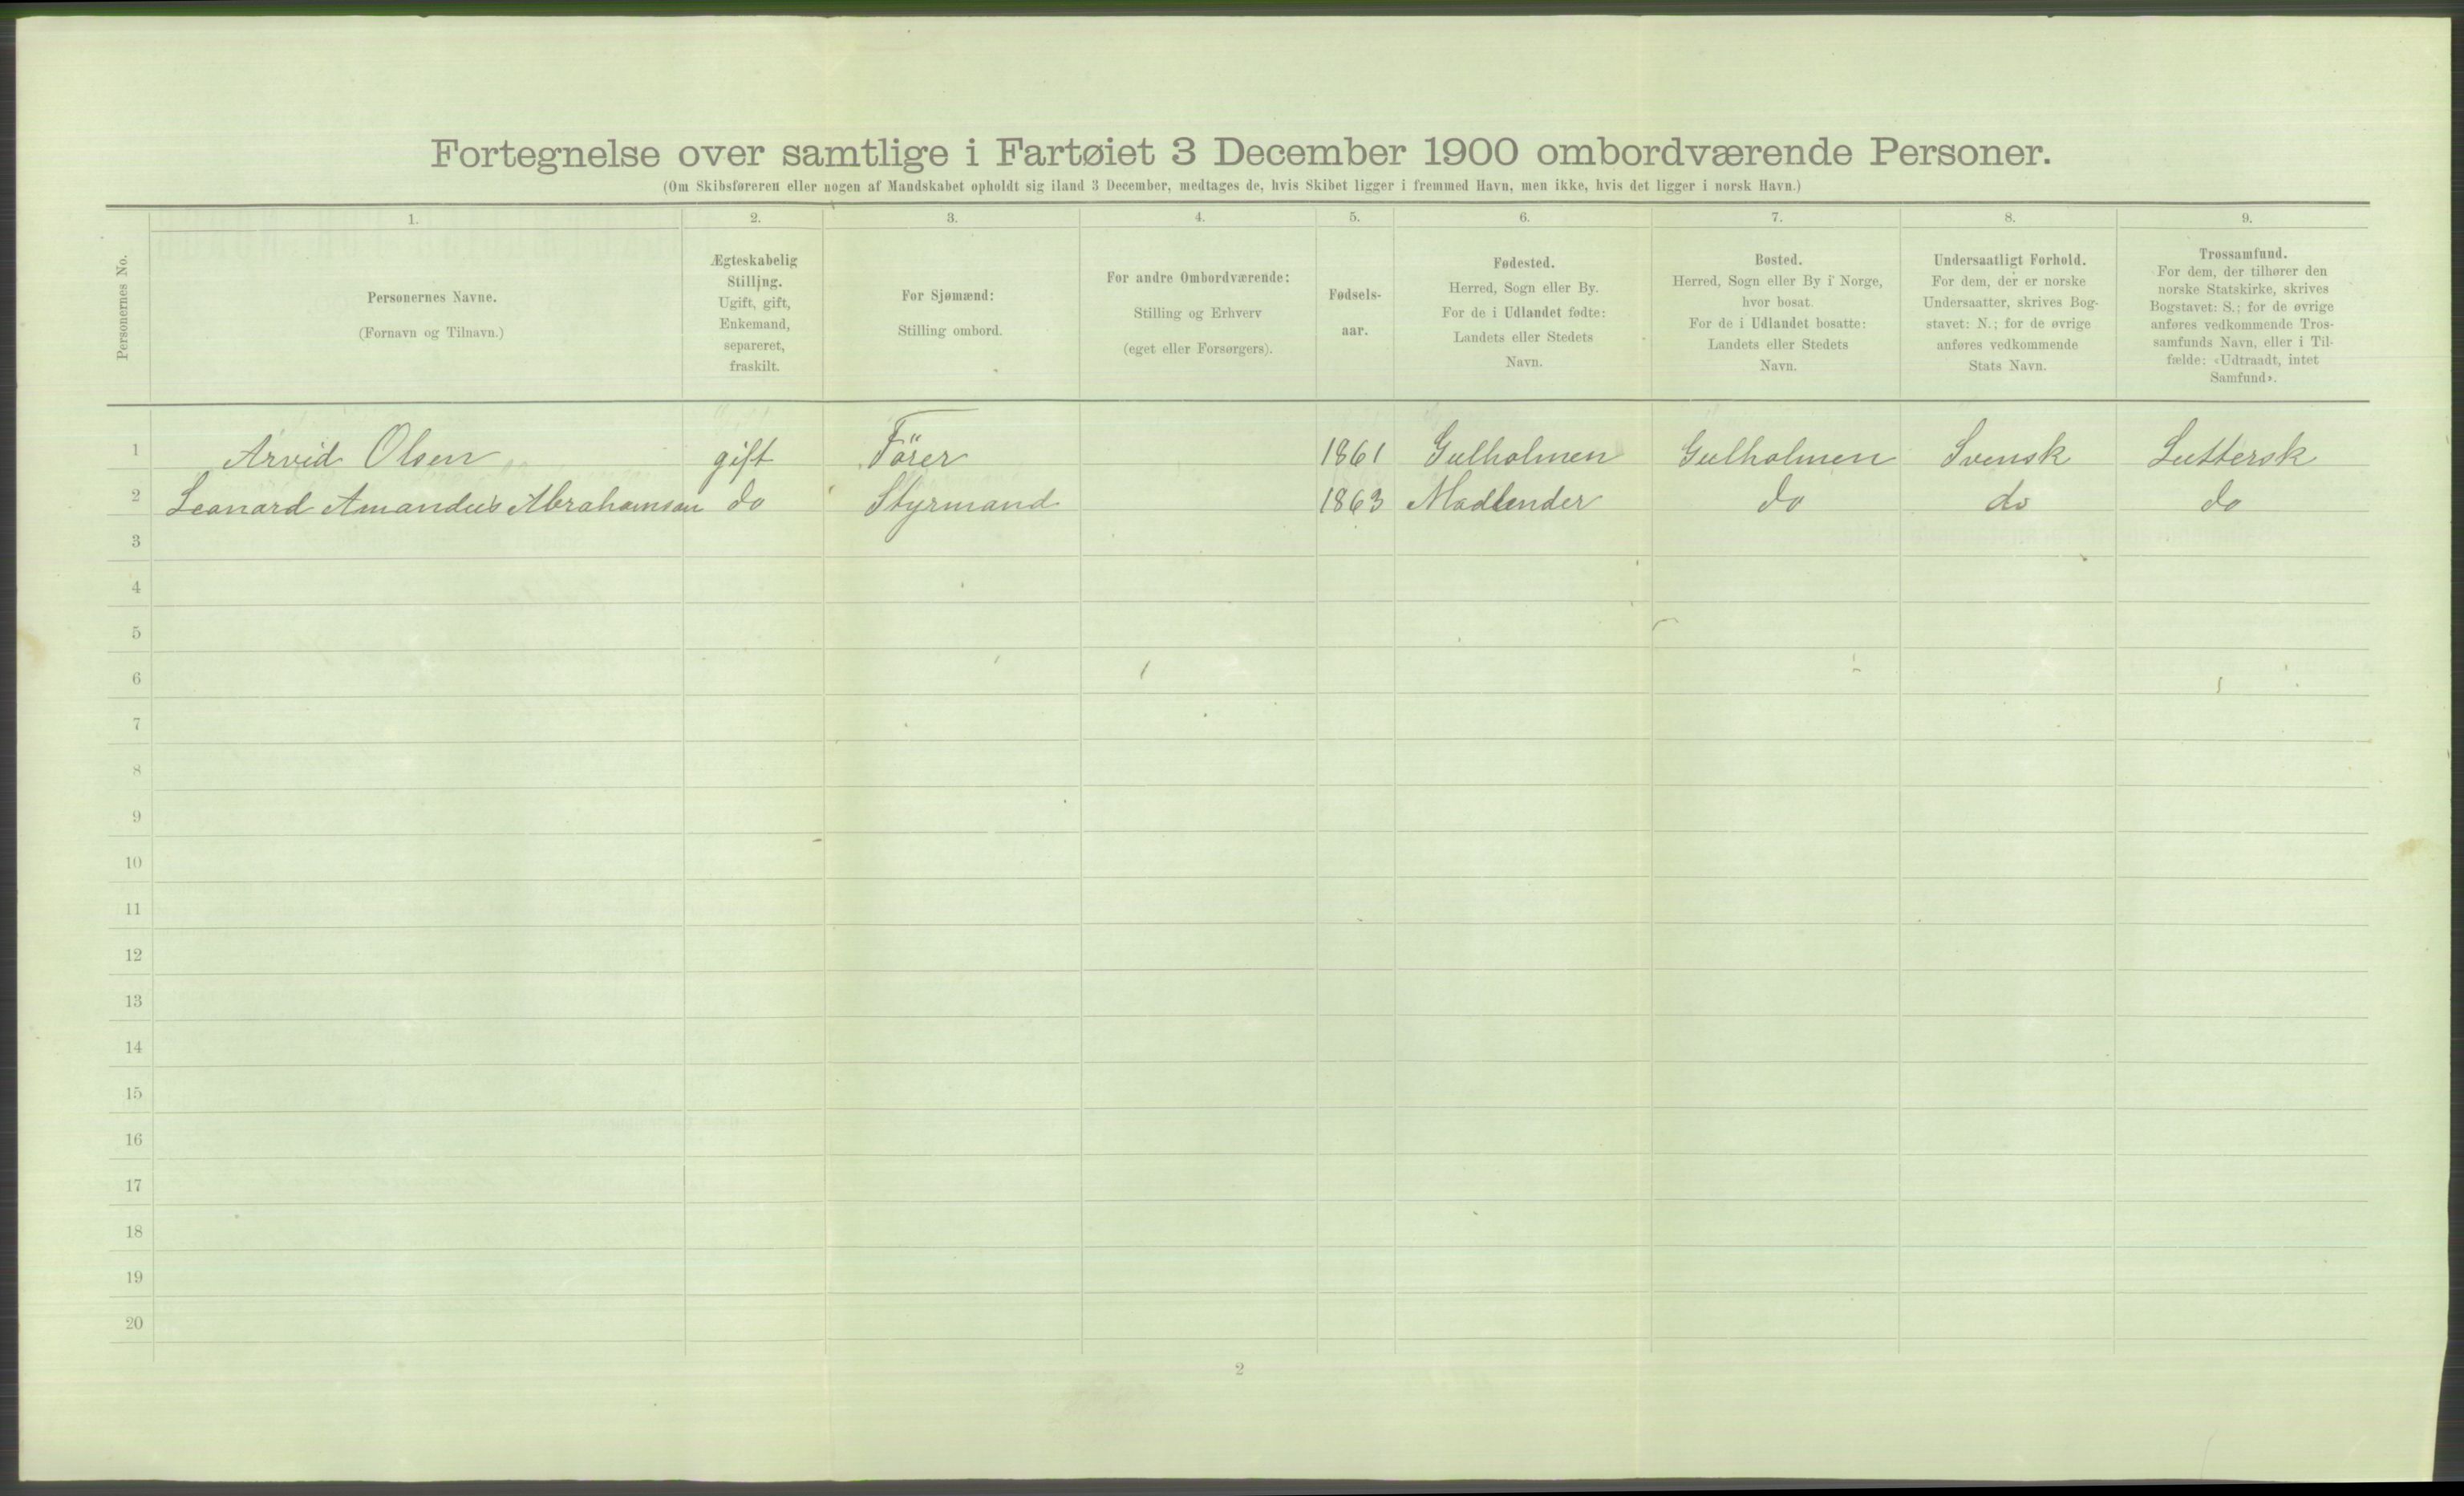 Fortegnelse over samtlige i Fartøiet 3 December 1900 ombordværende Personer.
(Om Skibsføreren eller nogen af Mandskabet opholdt sig iland 3 December, medtages de, hvis Skibet ligger i fremmed Havn, men ikke, hvis det ligger i norsk Havn.)
Personernes No.
1.
Personernes Navne.
(Fornavn og Tilnavn.)
2.
Ægteskabelig
Stilling.
Ugift, gift,
Enkemand,
separeret,
fraskilt.
3.
For Sjømænd:
Stilling ombord.
4.
For andre Ombordværende:
Stilling og Erhverv
(eget eller Forsørgers).
5.
Fødsels-
aar.
6.
Fødested.
Herred, Sogn eller By.
For de i Udlandet fødte:
Landets eller Stedets
Navn.
7.
Bosted.
Herred, Sogn eller By i Norge,
hvor bosat.
For de i Udlandet bosatte:
Landets eller Stedets
Navn.
8.
Undersaatligt Forhold.
For dem, der er norske
Undersaatter, skrives Bog-
stavet: N.; for de øvrige
anføres vedkommende
Stats Navn.
9.
Trossamfund.
For dem, der tilhører den
norske Statskirke, skrives
Bogstavet: S.; for de øvrige
anføres vedkommende Tros-
samfunds Navn, eller i Til-
fælde: «Udtraadt, intet
Samfund».
1 Arvid Olsen gift Förer 1861 Gulholmen Gulholmen Svensk Luttersk
2 Leonard Amandus Abrahamsen do Styrmand 1863 Madlender do do do
3
4
5
6
7
8
9
10
11
12
13
14
15
16
17
18
19
20
2